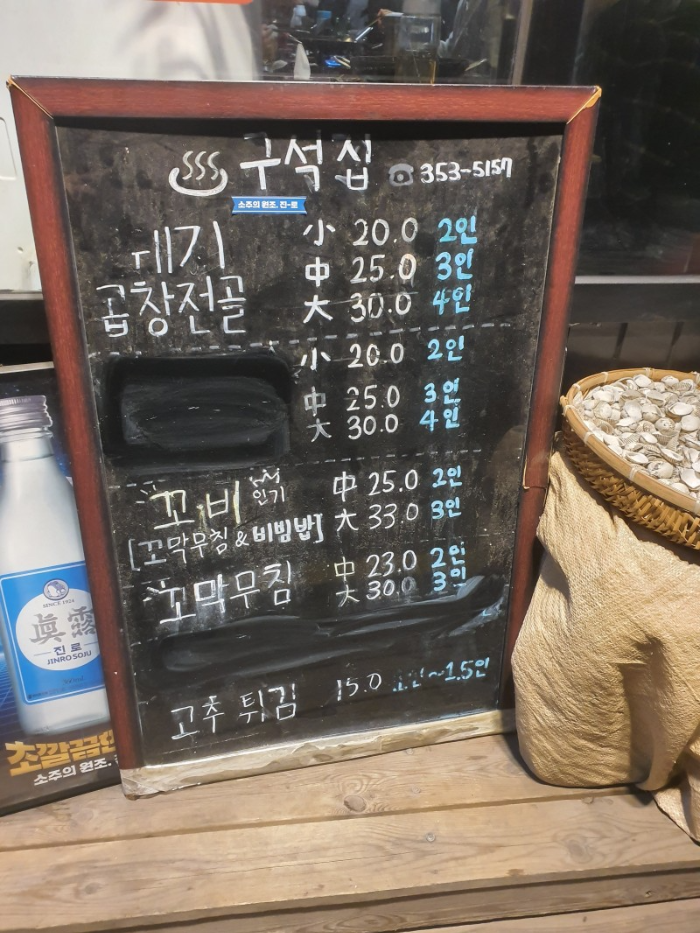 구석집 ☎ 353-5157
소주의 원조, 진-로
대기
곱창전골
小 20.0 2인
中 25.0 3인
大 30.0 4인
小 20.0 2인
中 25.0 3인
大 30.0 4인
꼬비 인기
[꼬막무침 & 비빔밥]
中 25.0 2인
大 33.0 3인
꼬막무침
中 23.0 2인
大 30.0 3인
고추 튀김 15.0 ~1.5인
SINCE 1924
眞露
진로
JINRO SOJU
초깔끔한
소주의 원조.